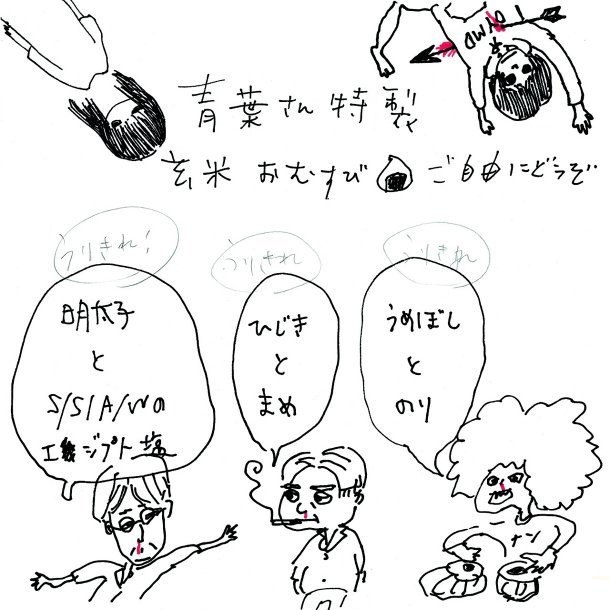 OWJO
青葉さん特製
玄米 おむすび ご自由にどうぞ
うりきれ！
うりきれ
うりきれ
明太子
と
S/S/A/Wの
エジプト塩
ひじき
と
まめ
うめぼし
と
のり
ナン